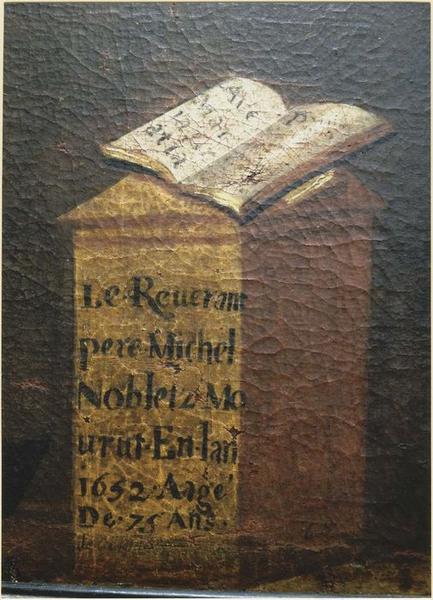 Ave
Mari
Gra
atia
P
Le·Reuerant
pere·Michel
Nobletz·Mo
urut·En·lan
1652·Aagé
De·75 Ans·